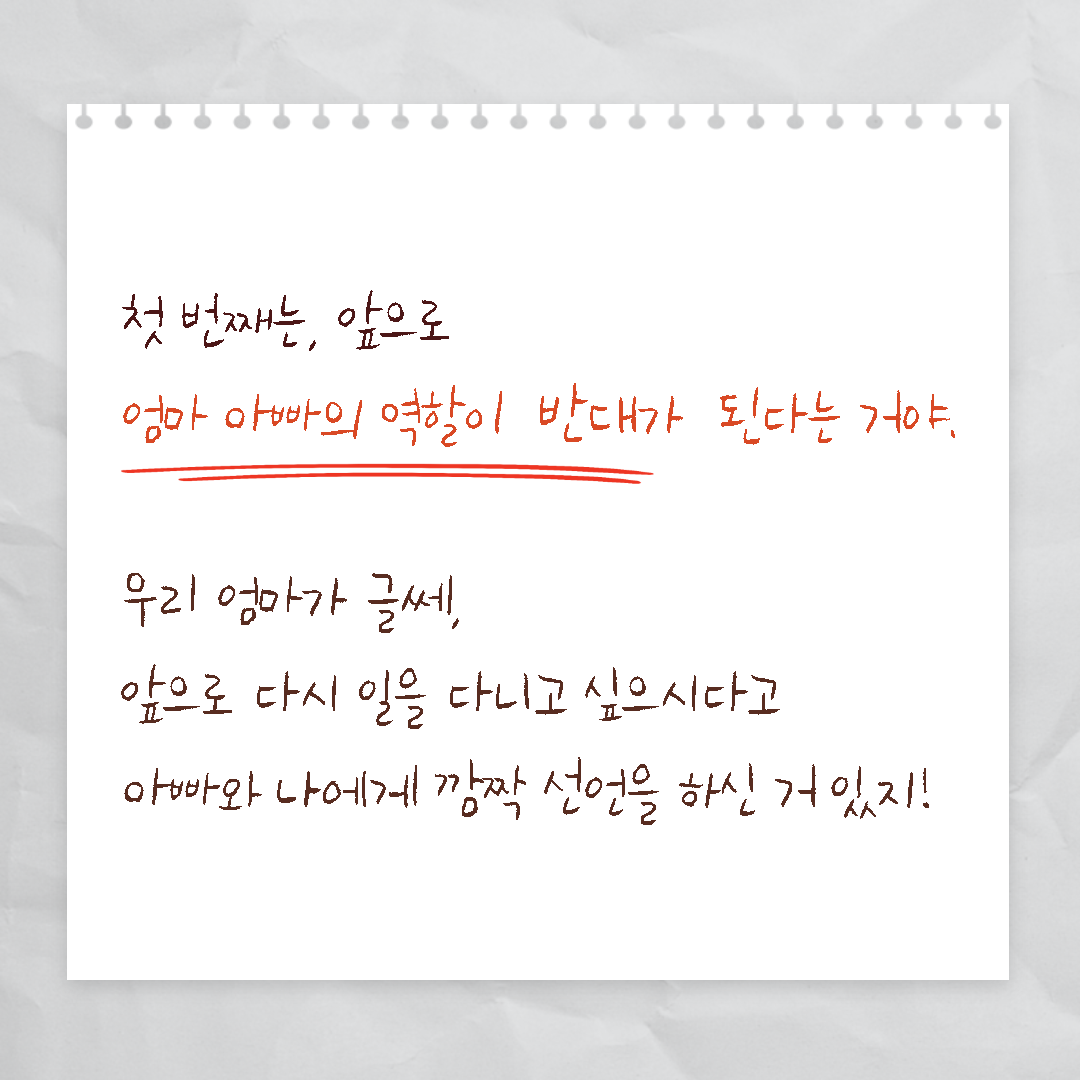 첫 번째는, 앞으로
엄마 아빠의 역할이 반대가 된다는 거야.
우리 엄마가 글쎄,
앞으로 다시 일을 다니고 싶으시다고
아빠와 나에게 깜짝 선언을 하신 거 있지!